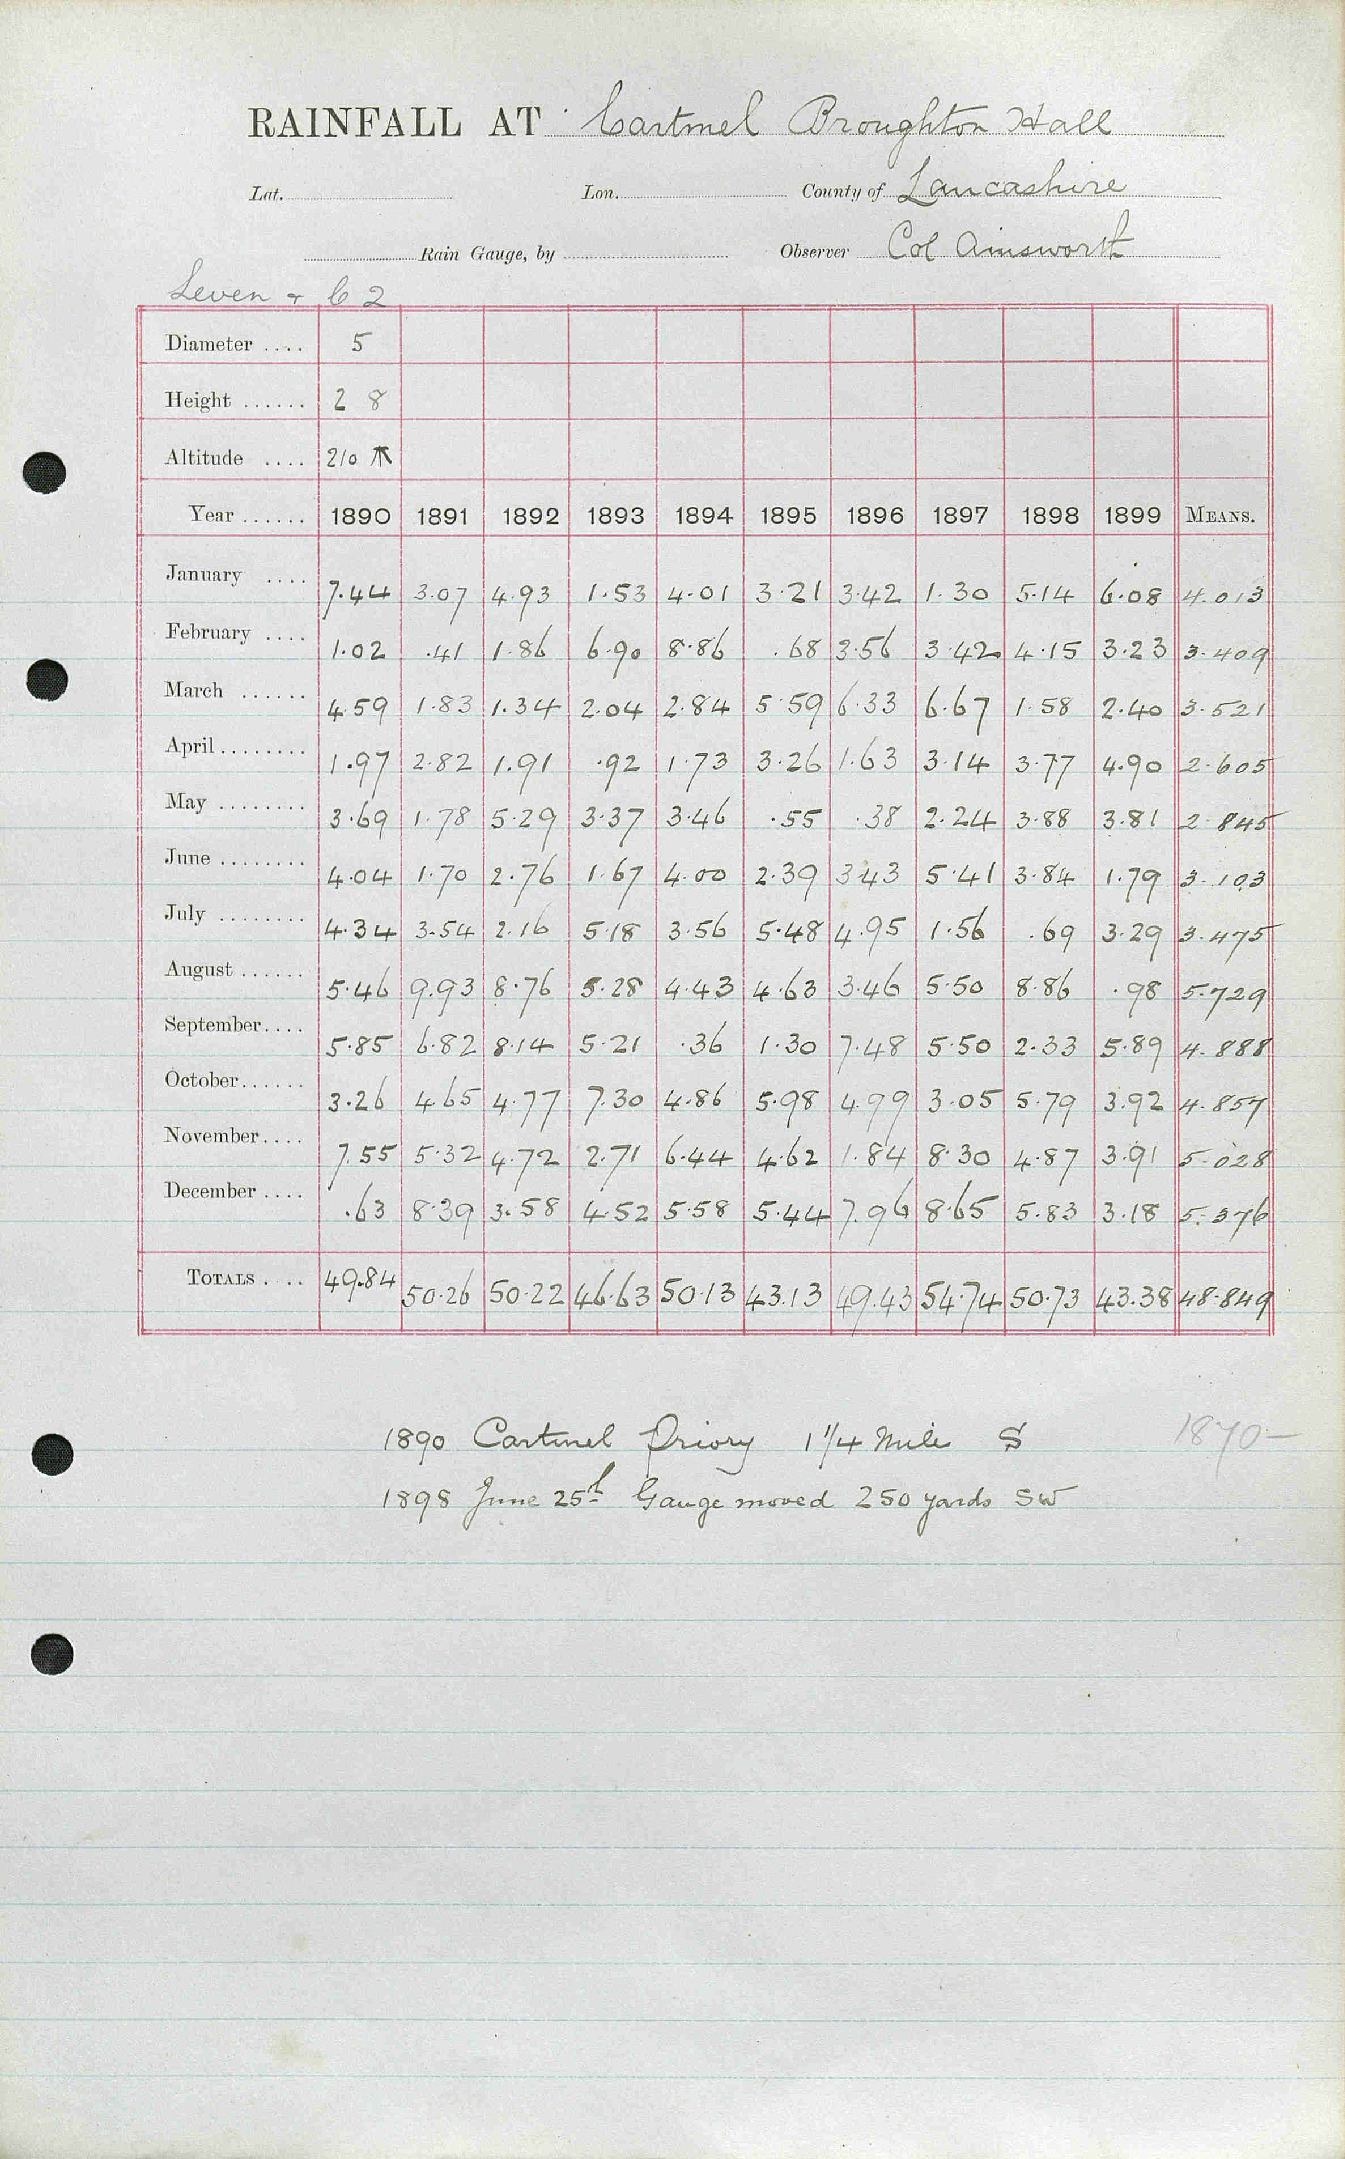 RAINFALL AT Cartmel Broughton Hall
Lat. Lon. County of Lancashire
Rain Gauge, by Observer Col Ainsworth
Leven & C 2
Diameter .... 5
Height ...... 2 8
Altitude .... 210
Year ...... 1890 1891 1892 1893 1894 1895 1896 1897 1898 1899 MEANS.
January .... 7.44 3.07 4.93 1.53 4.01 3.21 3.42 1.30 5.14 6.08 4.013
February .... 1.02 .41 1.86 6.90 8.86 .68 3.56 3.42 4.15 3.23 3.409
March ...... 4.59 1.83 1.34 2.04 2.84 5.59 6.33 6.67 1.58 2.40 3.521
April ........ 1.97 2.82 1.91 .92 1.73 3.26 1.63 3.14 3.77 4.90 2.605
May ........ 3.69 1.78 5.29 3.37 3.46 .55 .38 2.24 3.88 3.81 2.845
June ........ 4.04 1.70 2.76 1.67 4.00 2.39 3.43 5.41 3.84 1.79 3.103
July ........ 4.34 3.54 2.16 5.18 3.56 5.48 4.95 1.56 .69 3.29 3.475
August ...... 5.46 9.93 8.76 5.28 4.43 4.63 3.46 5.50 8.86 .98 5.729
September.... 5.85 6.82 8.14 5.21 .36 1.30 7.48 5.50 2.33 5.89 4.888
October...... 3.26 4.65 4.77 7.30 4.86 5.98 4.99 3.05 5.79 3.92 4.857
November.... 7.55 5.32 4.72 2.71 6.44 4.62 1.84 8.30 4.87 3.91 5.028
December .... .63 8.39 3.58 4.52 5.58 5.44 7.96 8.65 5.83 3.18 5.376
TOTALS .... 49.84 50.26 50.22 46.63 50.13 43.13 49.43 54.74 50.73 43.38 48.849
1890 Cartmel Priory 1 1/4 Mile S
1870-
1898 June 25th Gauge moved 250 yards SW